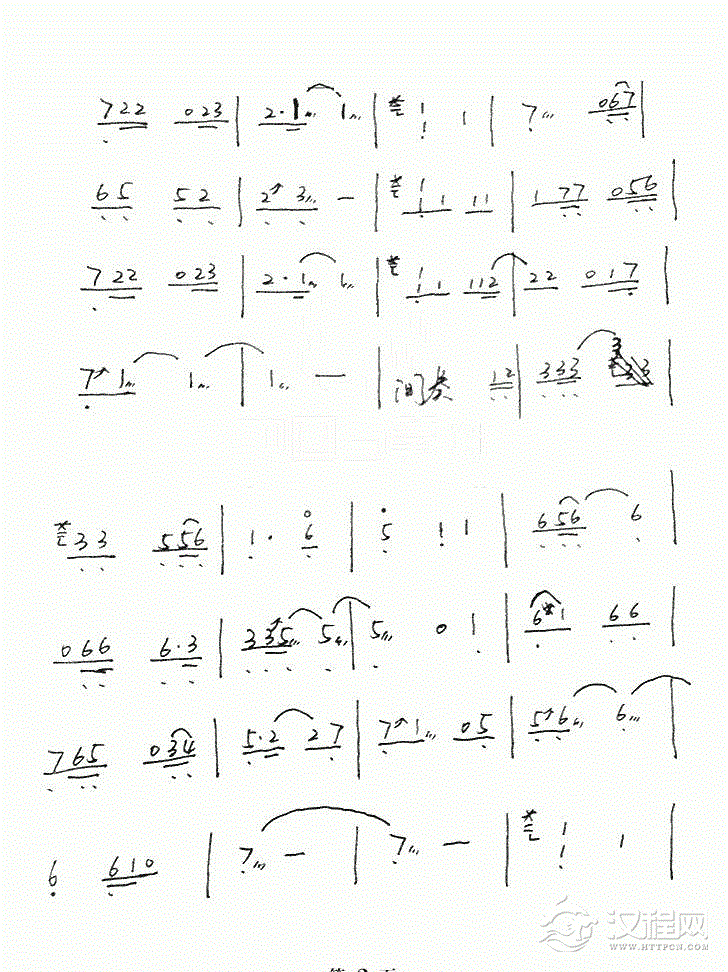 722 023 | 2·1 1 | 1 1 | 7 067 |
65 52 | 2 3 — | 1 1 11 | 177 056 |
722 023 | 2·1 1 | 1 1 112 | 22 017 |
7 1 1 | 1 — | 间奏 12 | 333 |
33 556 | 1· 6 | 5 1 1 | 656 6 |
066 6·3 | 335 5 | 5 0 1 | 6 1 66 |
765 034 | 5·2 27 | 7 1 05 | 5 6 6 |
6 610 | 7 — | 7 — | 1 1 |
汉程网
HTTPCN.COM